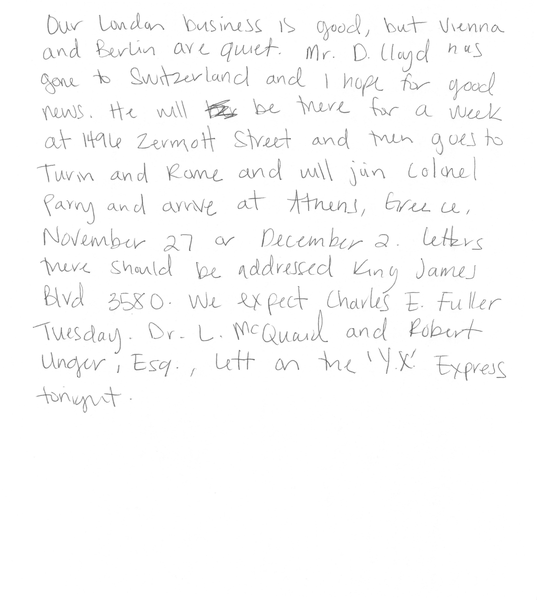 Our London business is good, but Vienna
and Berlin are quiet. Mr. D. Lloyd has
gone to Switzerland and I hope for good
news. He will be there for a week
at 1496 Zermott Street and then goes to
Turin and Rome and will join Colonel
Parry and arrive at Athens, Greece,
November 27 or December 2. Letters
there should be addressed King James
Blvd 3580. We expect Charles E. Fuller
Tuesday. Dr. L. McQuaid and Robert
Unger, Esq., left on the 'Y.X.' Express
tonight.